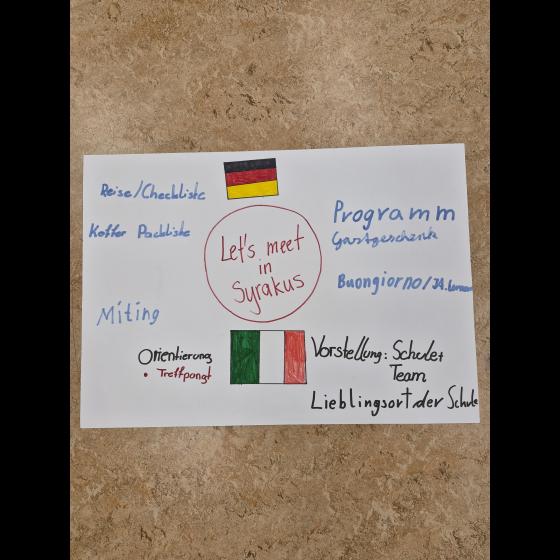 Reise/Checkliste
Koffer Packliste
Miting
Orientierung
• Treffpangt
Let's meet
in
Syrakus
Programm
Gastgeschenk
Buongiorno/
Vorstellung: Schule+
Team
Lieblingsort der Schule